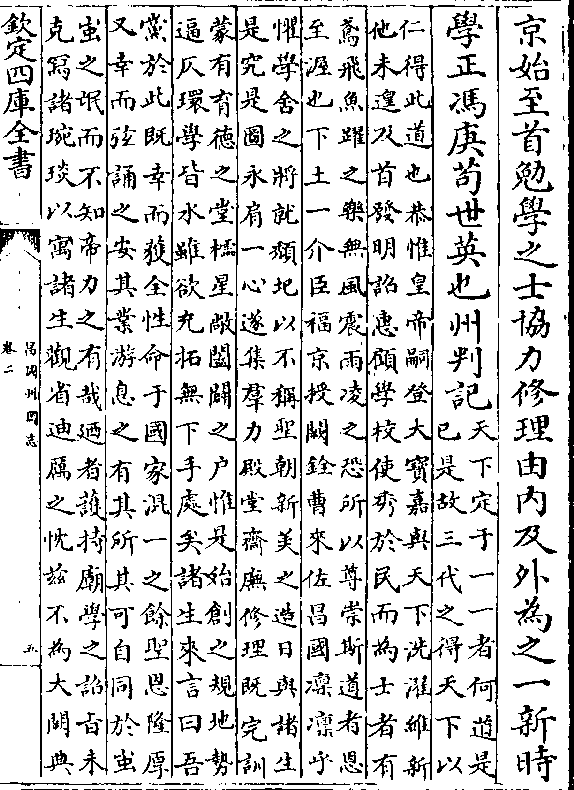 京始至首勉學之士協力修理由内及外為之一新時
學正馮庚苟世英也州判記
天下定于一一者何道是
已是故三代之得天下以
仁得此道也恭惟皇帝嗣登大寶嘉與天下洗濯維新
他未遑及首發明詔惠顧學校使秀於民而為士者有
鳶飛魚躍之樂無風震雨凌之恐所以尊崇斯道者恩
至渥也下土一介臣福京授闕銓曹來佐昌國凜凜乎
懼學舍之將就頹圮以不稱聖朝新美之造日與諸生
是究是圖永肩一心遂集羣力殿堂齋廡修理既完訓
蒙有育德之堂櫺星敞闔闢之户惟是始創之規地勢
逼仄環學皆水雖欲充拓無下手處矣諸生來言曰吾
黨於此既幸而獲全性命于國家混一之餘聖恩隆厚
又幸而弦誦之安其業游息之有其所其可自同於蚩
蚩之氓而不知帝力之有哉廼者護持廟學之詔旨未
克寫諸琬琰以寓諸生觀省迪厲之忱兹不為大闕典
欽定四庫全書
昌國州圖志
卷二
五